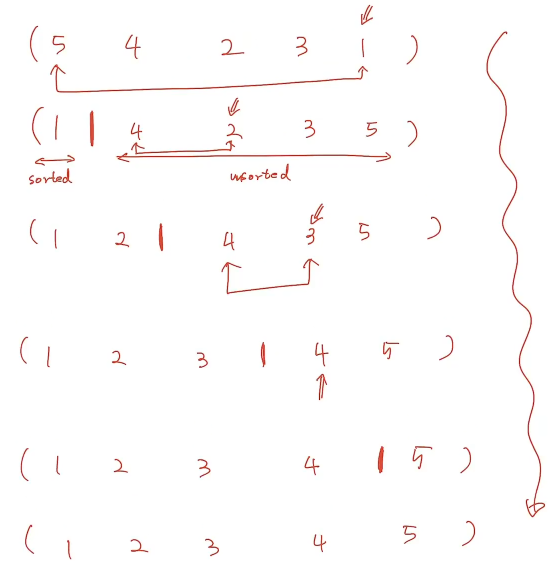 ( 5 4 2 3 1 )
( 1 | 4 2 3 5 )
sorted unsorted
( 1 2 | 4 3 5 )
( 1 2 3 | 4 5 )
( 1 2 3 4 | 5 )
( 1 2 3 4 5 )